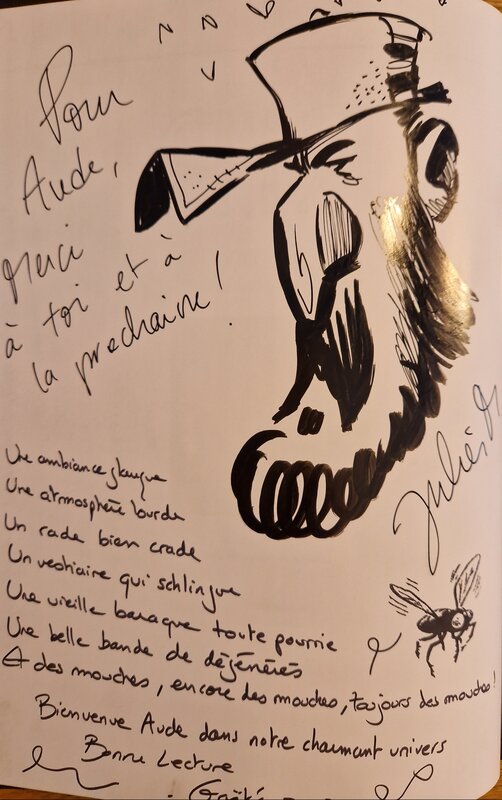 Pour
Aude,
Merci
à toi et à
la prochaine !
Une ambiance glauque
Une atmosphère lourde
Un rade bien crade
Un vestiaire qui schlingue
Une vieille baraque toute pourrie
Une belle bande de dégénérés
Et des mouches, encore des mouches, toujours des mouches !
Bienvenue Aude dans notre charmant univers
Bonne Lecture